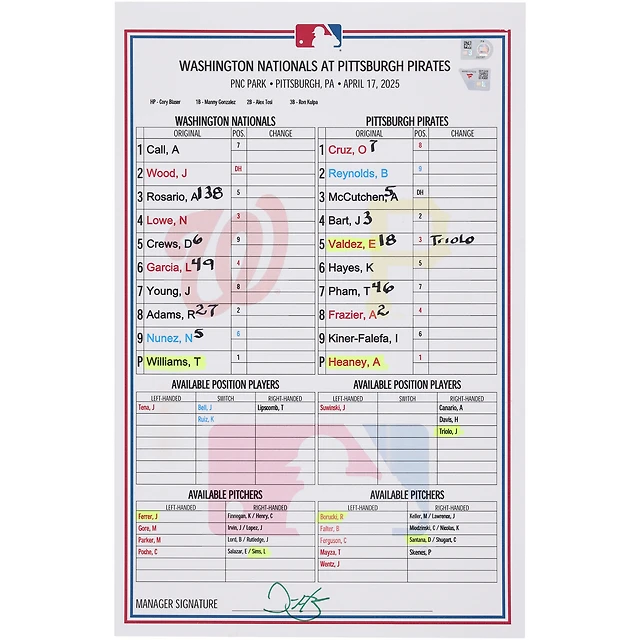 WASHINGTON NATIONALS AT PITTSBURGH PIRATES
PNC PARK • PITTSBURGH, PA • APRIL 17, 2025
HP - Cory Blaser 1B - Manny Gonzalez 2B - Alex Tosi 3B - Ron Kulpa
WASHINGTON NATIONALS
ORIGINAL POS. CHANGE
1 Call, A 7
2 Wood, J DH
3 Rosario, A 138 5
4 Lowe, N 3
5 Crews, D 6 9
6 Garcia, L 49 4
7 Young, J 8
8 Adams, R 27 2
9 Nunez, N 5 6
P Williams, T 1
PITTSBURGH PIRATES
ORIGINAL POS. CHANGE
1 Cruz, O 7 8
2 Reynolds, B 9
3 McCutchen, A 5 DH
4 Bart, J 3 2
5 Valdez, E 18 3 Triolo
6 Hayes, K 5
7 Pham, T 46 7
8 Frazier, A 2 4
9 Kiner-Falefa, I 6
P Heaney, A 1
AVAILABLE POSITION PLAYERS
LEFT-HANDED SWITCH RIGHT-HANDED
Tena, J Bell, J Lipscomb, T
Ruiz, K
AVAILABLE POSITION PLAYERS
LEFT-HANDED SWITCH RIGHT-HANDED
Suwinski, J Canario, A
Davis, H
Triolo, J
AVAILABLE PITCHERS
LEFT-HANDED RIGHT-HANDED
Ferrer, J Finnegan, K / Henry, C
Gore, M Irvin, J / Lopez, J
Parker, M Lord, B / Rutledge, J
Poche, C Salazar, E / Sims, L
AVAILABLE PITCHERS
LEFT-HANDED RIGHT-HANDED
Borucki, R Keller, M / Lawrence, J
Falter, B Mlodzinski, C / Nicolas, K
Ferguson, C Santana, D / Shugart, C
Mayza, T Skenes, P
Wentz, J
MANAGER SIGNATURE